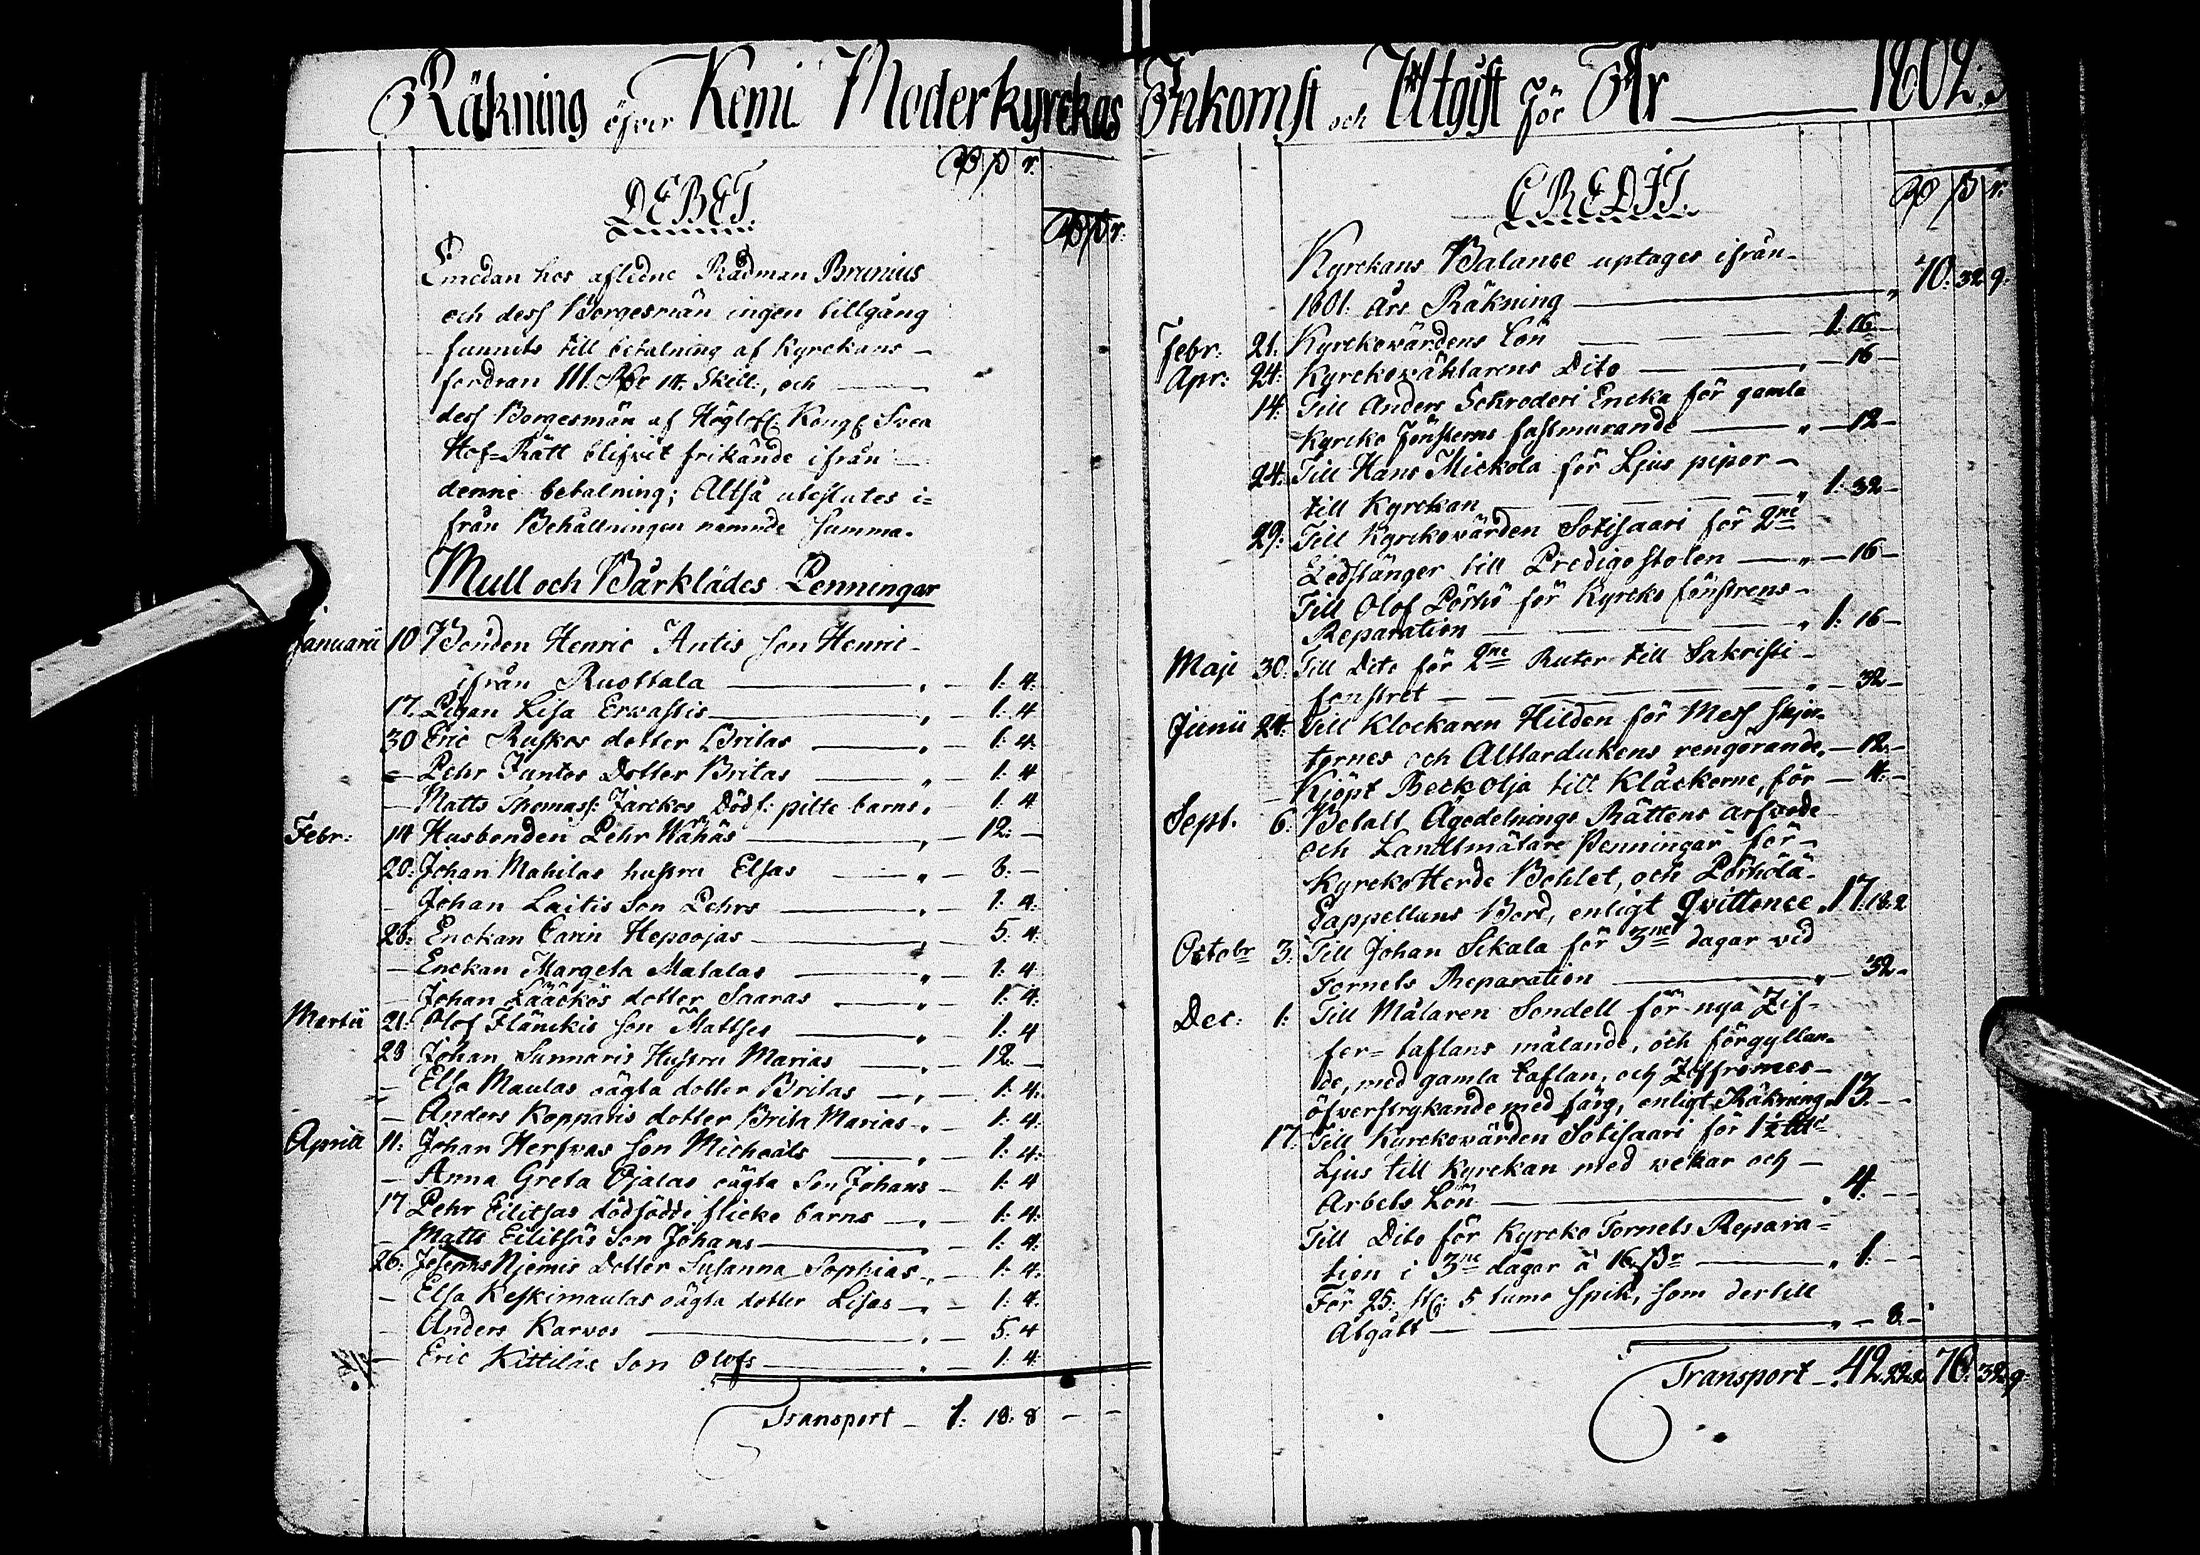 Räkning öfver Kemi Moderkyrckas Inkomst och Utgift för År 1802.
DEBET.
Emedan hos aflidne Rådman Brunius
och dess Borgesmän ingen tillgång
funnits till betalning af Kyrckans
fordran 111. Rdr 14. Skill:, och
dess Borgesmän af Höglofl: Kongl: Svea
Hof-Rätt blifvit frikände ifrån
denne betalning; Altså uteslutes i=
från Behållningen nämnde summa.
Mull och Bårklädes Penningar
Januarii 10 Bonden Henric Antis son Henric
ifrån Ruottala 1: 4:
17. Pigan Lisa Erwastis 1: 4
30 Eric Ruskos dotter Britas 1: 4:
Pehr Juntos Dotter Britas 1: 4
Matts Thomass: Jarckos Dödf: pilte barns 1: 4
Febr: 14 Husbonden Pehr Wähäs 12: –
20: Johan Mahilas hustru Elsas 8: –
Johan Laitis Son Pehrs 1: 4:
26: Enckan Carin Hepoojas 5: 4:
Enckan Margeta Matalas 1: 4
Johan Lääckös dotter Saaras 1: 4:
Martii 21: Olof Flänckis son Mattses 1: 4
28 Johan Sunnaris Hustru Marias 12: –
Elsa Maulas oägta dotter Britas 1: 4:
Anders Kopparis dotter Brita Marias 1: 4:
Aprill 11: Johan Herfvas son Michaels 1: 4:
Anna Greta Ojalas oägta Son Johans 1: 4
17 Pehr Eilitsas dödfödde flicke barns 1: 4:
Matts Eilitsäs Son Johans 1: 4:
26: Josephs Njemis Dotter Susanna Sophias 1: 4:
Elsa Keskimaulas oägta dotter Lisas 1: 4:
Anders Karvos 5: 4
Eric Kittiläs Son Olofs 1: 4:
Transport 1: 18: 8
CREDIT.
Kyrckans Balance uptages ifrån
1801. års Räkning 70: 32 9:
Febr: 21. Kyrckowärdens Lön 1: 16
Apr: 24: Kyrckowäktarens Dito 16
14: Till Anders Schroderi Encka för gamla
Kyrcko fönsterns fastmurande 12
24: Till Hans Mickola för Ljus pipor
till Kyrckan 1: 32
29: Till Kyrckowärden Sotisaari för 2ne
Ledstänger till Predigostolen 16
Till Olof Pörhö för Kyrcko fönstrens
Reparation 1: 16
Maji 30: Till Dito för 2ne Rutor till Sakristi
fönstret 32
Junii 24: Till Klockaren Hilden för Mess skjor=
tornes och Altardukens rengörande 12
Kjöpt Beckolja till Kläckorne, för 4:
Sept. 6: Betalt Ägodelnings Rättens arfvode
och Landtmätare Penningar för
Kyrcko Herde Bohlet, och Pörhölä
Cappellans Bord, enligt Qvittence 17: 18: 2
Octobr 3: Till Johan Sikala för 3ne dagar vid
Tornets Reparation 32
Dec: 1: Till Målaren Sondell för nya Zif=
fer= taflans målande, och förgyllan=
de, med gamla taflan, och Ziffrornes
öfverstrykande med färg, enligt Räkning 13:
17: Till Kyrckowärden Sotisaari för 1½ ℔
Ljus till Kyrckan med wekar och
Arbets Lön 4:
Till Dito för Kyrcko Tornets Repara=
tion i 3ne dagar à 16 1:
För 25: st: 5 tums spik, som dertill
Åtgått 8:
Transport 42. 22. 2 70: 32 9: